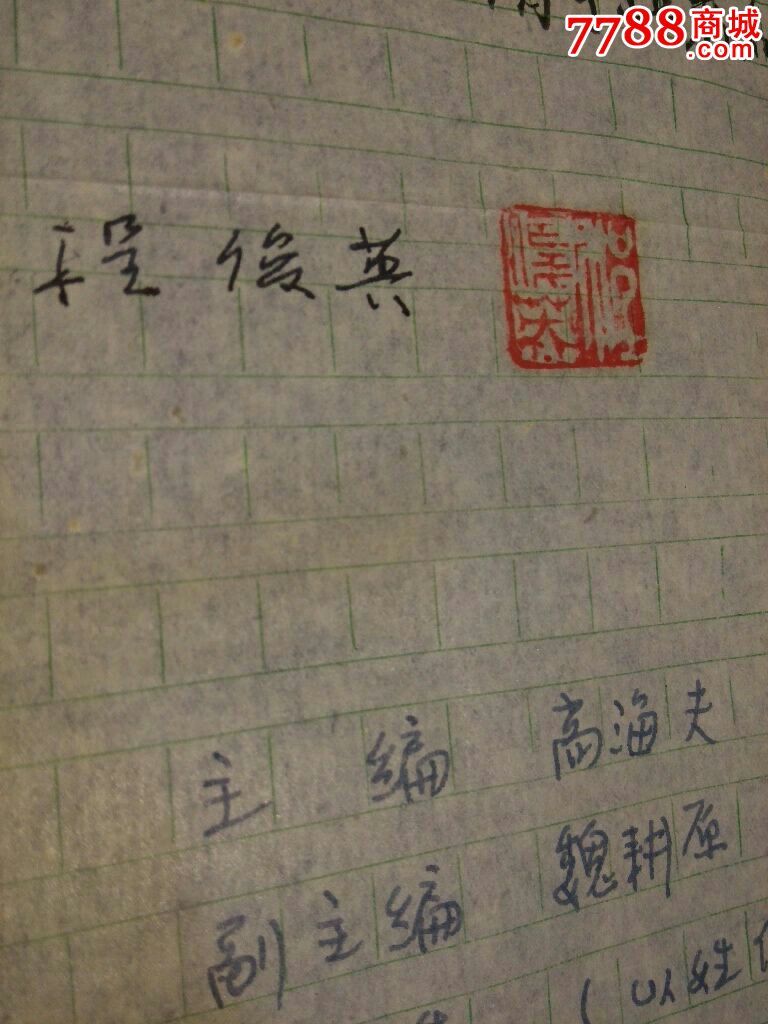 7788商城
.com
程俊英
程俊英
主编 高海夫
副主编 魏耕原
(以姓